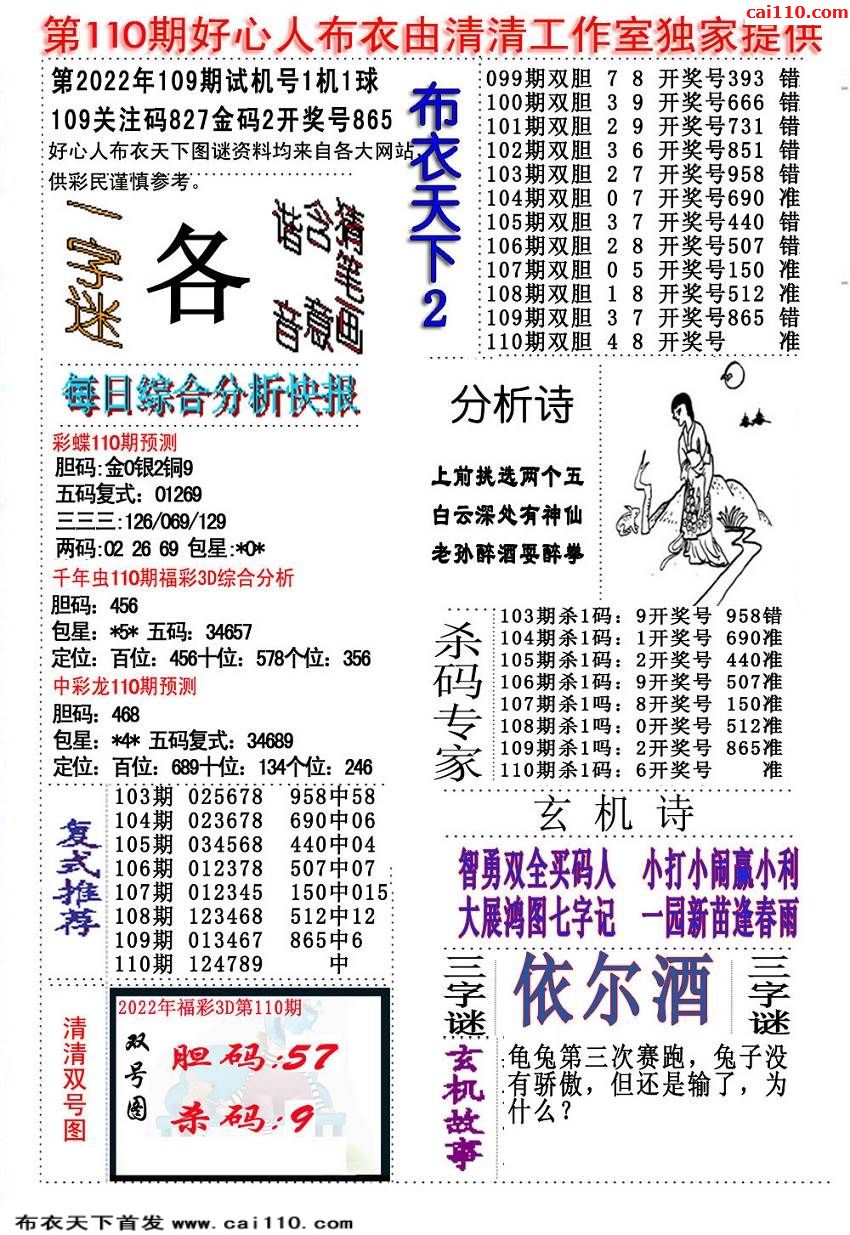 cai110.com
第110期好心人布衣由清清工作室独家提供
第2022年109期试机号1机1球
109关注码827金码2开奖号865
好心人布衣天下图谜资料均来自各大网站,
供彩民谨慎参考。
一字迷
各
猜笔画
含意
谐音
布衣天下2
099期双胆 7 8 开奖号393 错
100期双胆 3 9 开奖号666 错
101期双胆 2 9 开奖号731 错
102期双胆 3 6 开奖号851 错
103期双胆 2 7 开奖号958 错
104期双胆 0 7 开奖号690 准
105期双胆 3 7 开奖号440 错
106期双胆 2 8 开奖号507 错
107期双胆 0 5 开奖号150 准
108期双胆 1 8 开奖号512 准
109期双胆 3 7 开奖号865 错
110期双胆 4 8 开奖号 准
每日综合分析快报
彩蝶110期预测
胆码:金0银2铜9
五码复式：01269
三三三:126/069/129
两码:02 26 69 包星:*0*
千年虫110期福彩3D综合分析
胆码：456
包星：*5* 五码：34657
定位：百位：456十位：578个位：356
中彩龙110期预测
胆码：468
包星：*4* 五码复式：34689
定位：百位：689十位：134个位：246
分析诗
上前挑选两个五
白云深处有神仙
老孙醉酒耍醉拳
杀码专家
103期杀1码：9开奖号 958错
104期杀1码：1开奖号 690准
105期杀1码：2开奖号 440准
106期杀1码：9开奖号 507准
107期杀1吗：8开奖号 150准
108期杀1吗：0开奖号 512准
109期杀1吗：2开奖号 865准
110期杀1码：6开奖号 准
复式推荐
103期 025678 958中58
104期 023678 690中06
105期 034568 440中04
106期 012378 507中07
107期 012345 150中015
108期 123468 512中12
109期 013467 865中6
110期 124789 中
玄机诗
智勇双全买码人 小打小闹赢小利
大展鸿图七字记 一园新苗逢春雨
三字谜
依尔酒
三字谜
清清双号图
2022年福彩3D第110期
双号图
胆码:57
杀码:9
玄机故事
龟兔第三次赛跑，兔子没
有骄傲，但还是输了，为
什么？
布衣天下首发 www.cai110.com